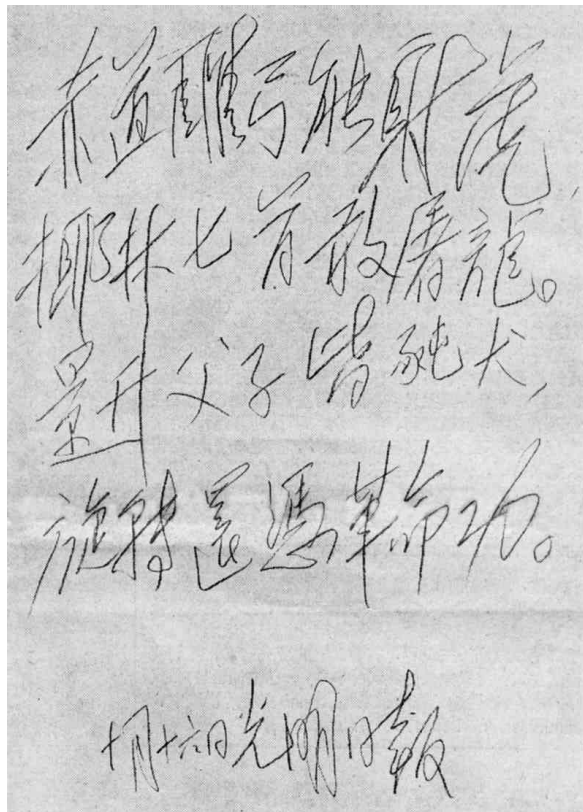 赤道雕弓能射虎,
椰林匕首敢屠龍。
景升父子皆豚犬,
旋轉還憑革命功。
十月十六日光明日報